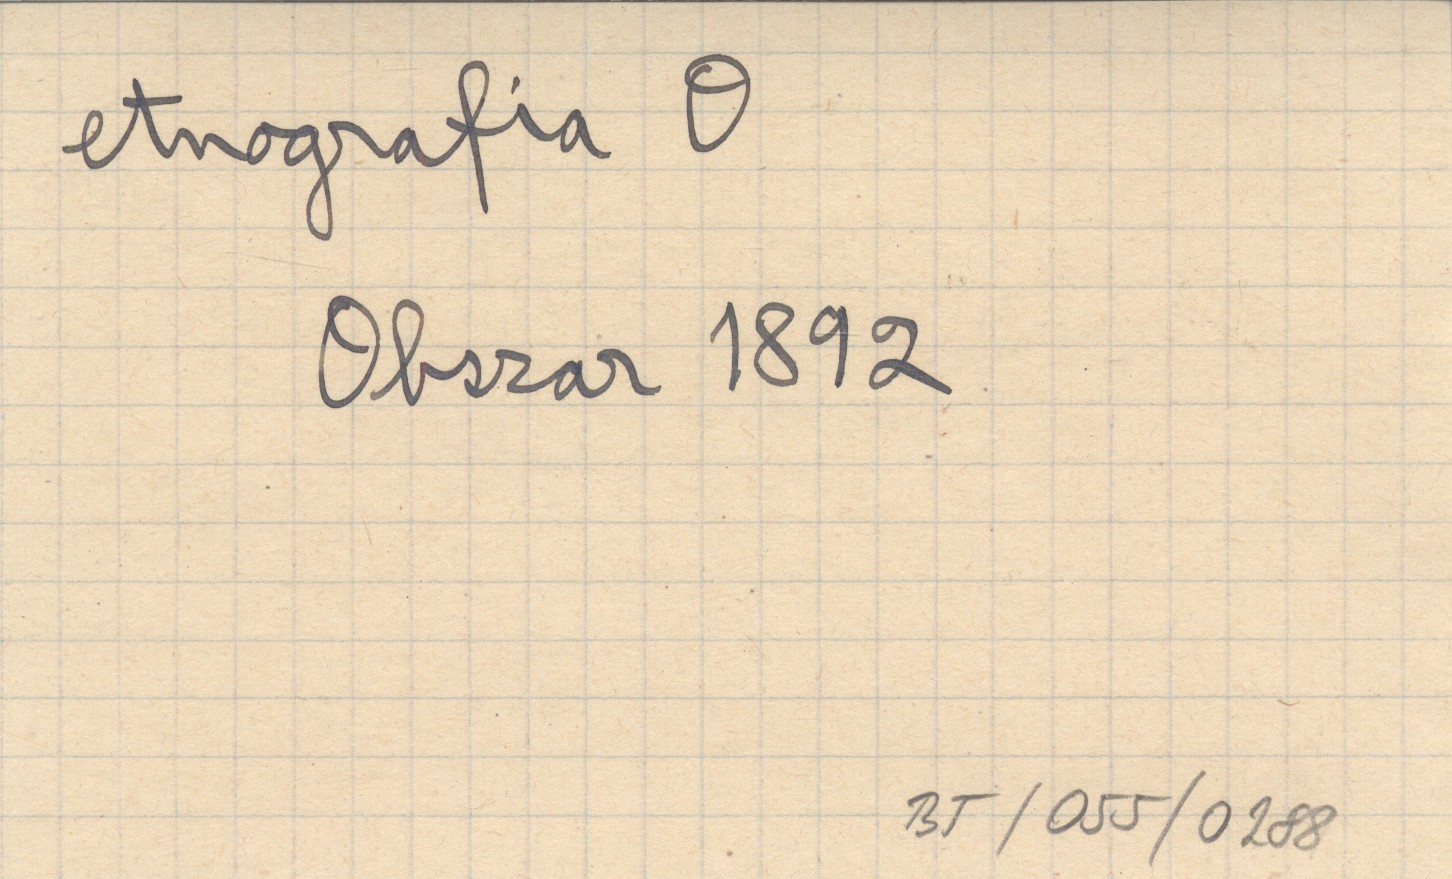 etnografia O
Obszar 1892
BT/055/0288